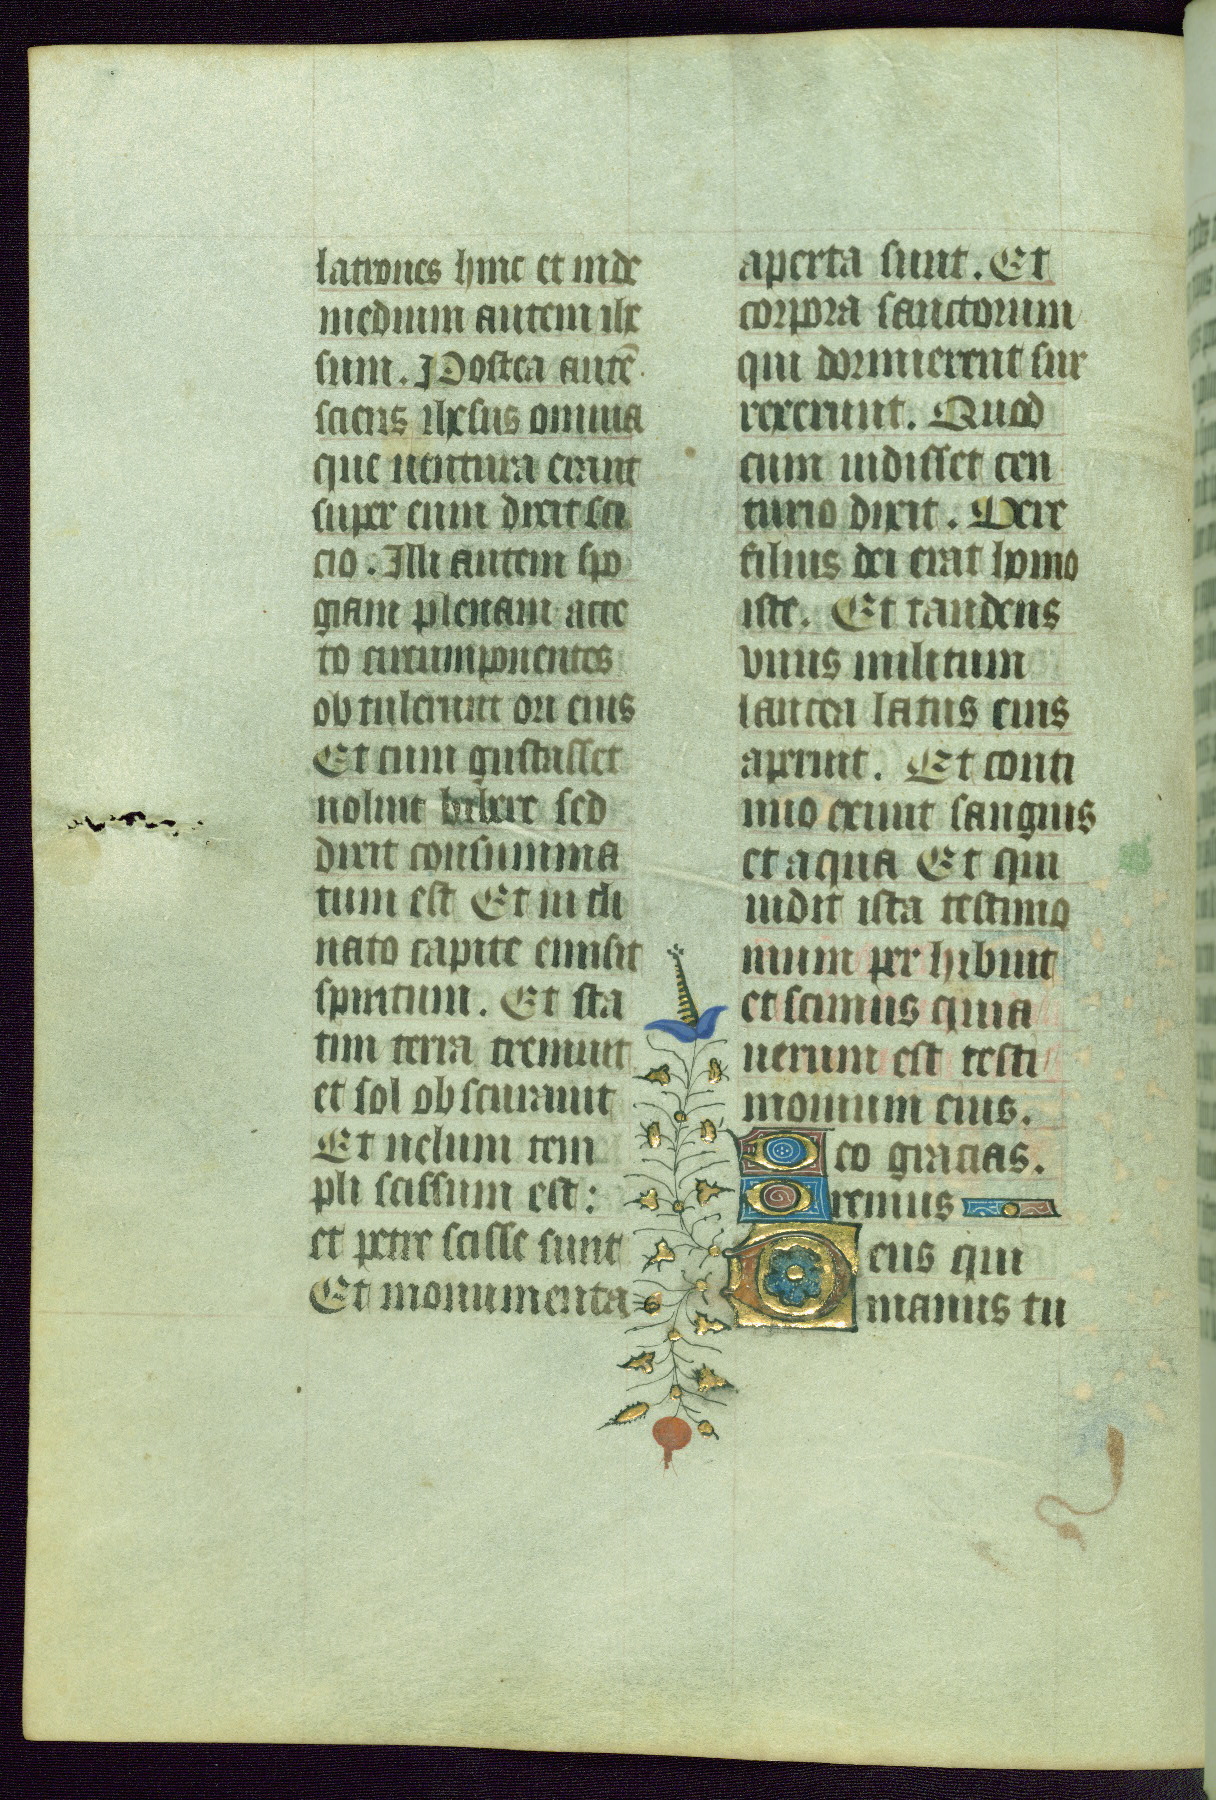 latrones hinc et inde
medium autem ihe
sum. Postea autē
sciens ihesus omnia
que uentura erant
super eum dixit sci
cio. Illi autem spō
giam plenam ace
to circumponentes
obtulerunt ori eius
Et cum gustasset
noluit bibere sed
dixit consumma
tum est Et in cli
nato capite emisit
spiritum. Et sta
tim terra tremuit
et sol obscurauit
Et uelum tem
pli scissum est:
et petre scisse sunt
Et monumenta
aperta sunt. Et
corpora sanctorum
qui dormierent sur
rexerunt. Quod
cum uidisset cen
turio dixit. Uere
filius dei erat homo
iste. Et tandens
vnus militum
lancea latus eius
aperuit. Et conti
nuo exiuit sanguis
et aqua Et qui
uidit ista testimo
nium per hibuit
et scimus quia
uerum est testi
monium eius.
Deo gracias.
Oremus
Deus qui
manus tu